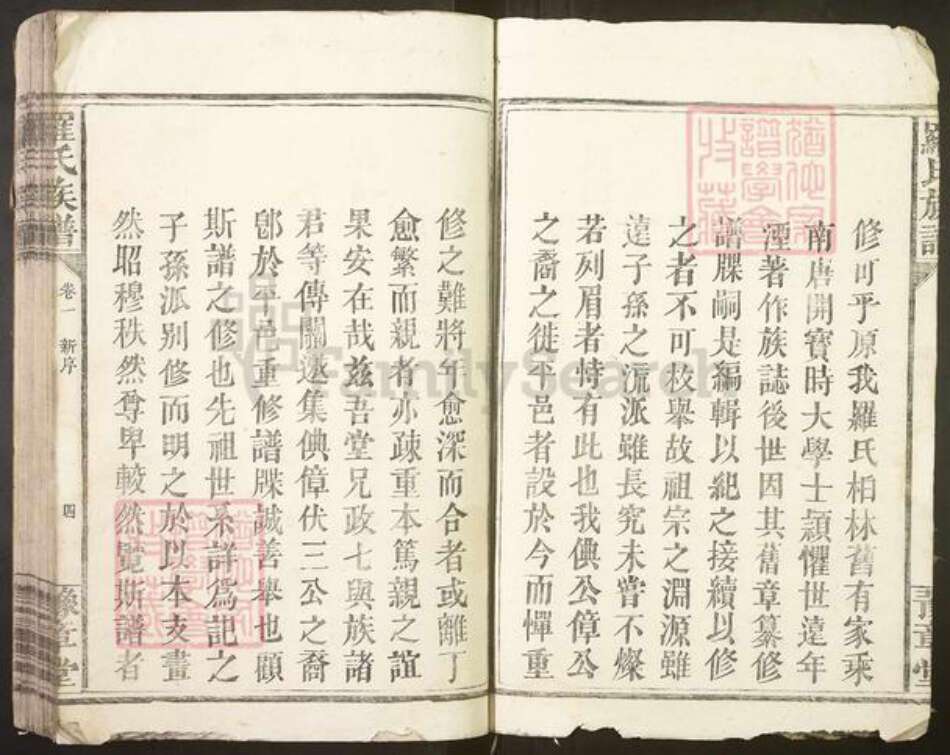 羅氏族譜
豫章堂
修可乎原我羅氏柏林舊有家乘
南唐開寶時大學士頴懼世遠年
湮著作族誌後世因其舊章纂修
譜牒嗣是編輯以紀之接續以修
之者不可枚舉故祖宗之淵源雖
遠子孫之流派雖長究未嘗不燦
若列眉者恃有此也我倎公偉公
之裔之徙平邑者設於今而憚重
修之難將年愈深而合者或離丁
愈繁而親者亦疎重本篤親之誼
果安在哉兹吾堂兄政七與族諸
君等傳關邀集倎偉伏三公之裔
卽於平邑重修譜牒誠善舉也顧
斯譜之修也先祖世系詳爲記之
子孫派别修而明之於以本支畫
然昭穆秩然尊卑較然覽斯譜者
羅氏族譜
卷一 新序
四
豫章堂
FamilySearch